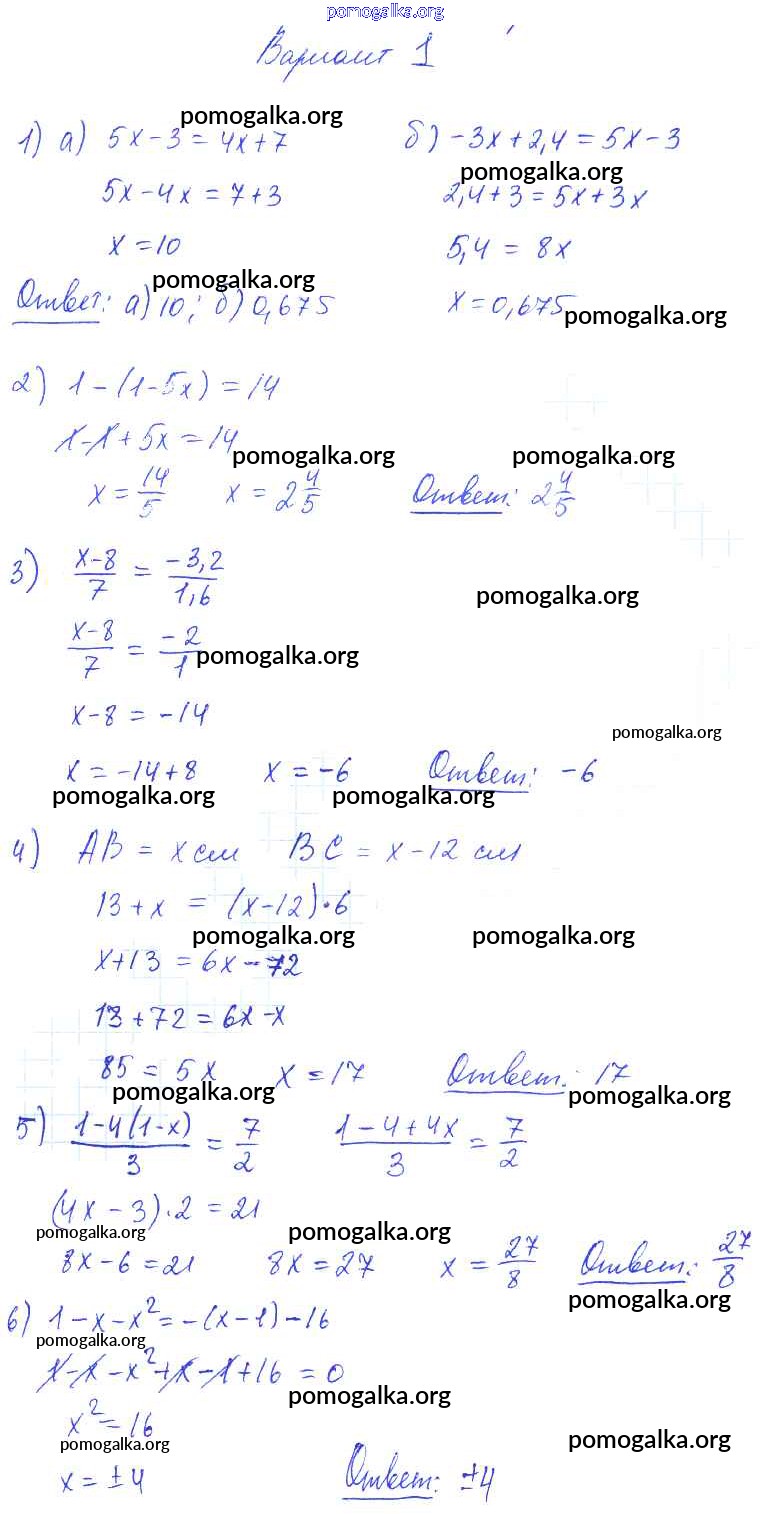 pomogalka.org
Вариант 1
pomogalka.org
1) а) 5x-3=4x+7 б) -3x+2,4=5x-3
pomogalka.org
5x-4x=7+3 2,4+3=5x+3x
x=10 5,4=8x
pomogalka.org
Ответ: а)10; б)0,675 x=0,675
pomogalka.org
2) 1-(1-5x)=14
1-1+5x=14
pomogalka.org pomogalka.org
x=14/5 x=2 4/5 Ответ: 2 4/5
3) (x-8)/7 = -3,2/1,6
pomogalka.org
(x-8)/7 = -2/1
pomogalka.org
x-8=-14
pomogalka.org
x=-14+8 x=-6 Ответ: -6
pomogalka.org pomogalka.org
4) AB=x см BC=x-12 см
13+x=(x-12)·6
pomogalka.org pomogalka.org
x+13=6x-72
13+72=6x-x
85=5x x=17 Ответ: 17
pomogalka.org pomogalka.org
5) (1-4(1-x))/3 = 7/2 (1-4+4x)/3 = 7/2
(4x-3)·2=21
pomogalka.org pomogalka.org
8x-6=21 8x=27 x=27/8 Ответ: 27/8
pomogalka.org
6) 1-x-x²=-(x-1)-16
pomogalka.org
1-x-x²+x-1+16=0
pomogalka.org
x²=16
pomogalka.org pomogalka.org
x=±4 Ответ: ±4